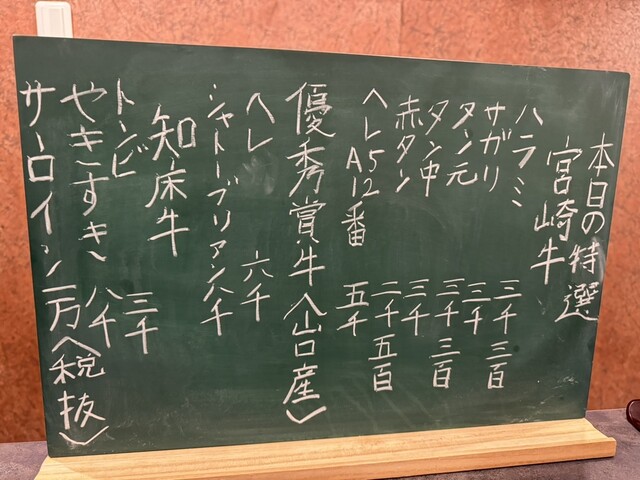 本日の特選
宮崎牛
ハラミ 三千三百
サガリ 三千
タン元 三千三百
タン中 三千
赤タン 二千五百
ヘレA5 12番 五千
優秀賞牛〈山口産〉
ヘレ 六千
シャトーブリアン八千
知床牛
トンビ 三千
やきすき 八千
サーロイン一万〈税抜〉